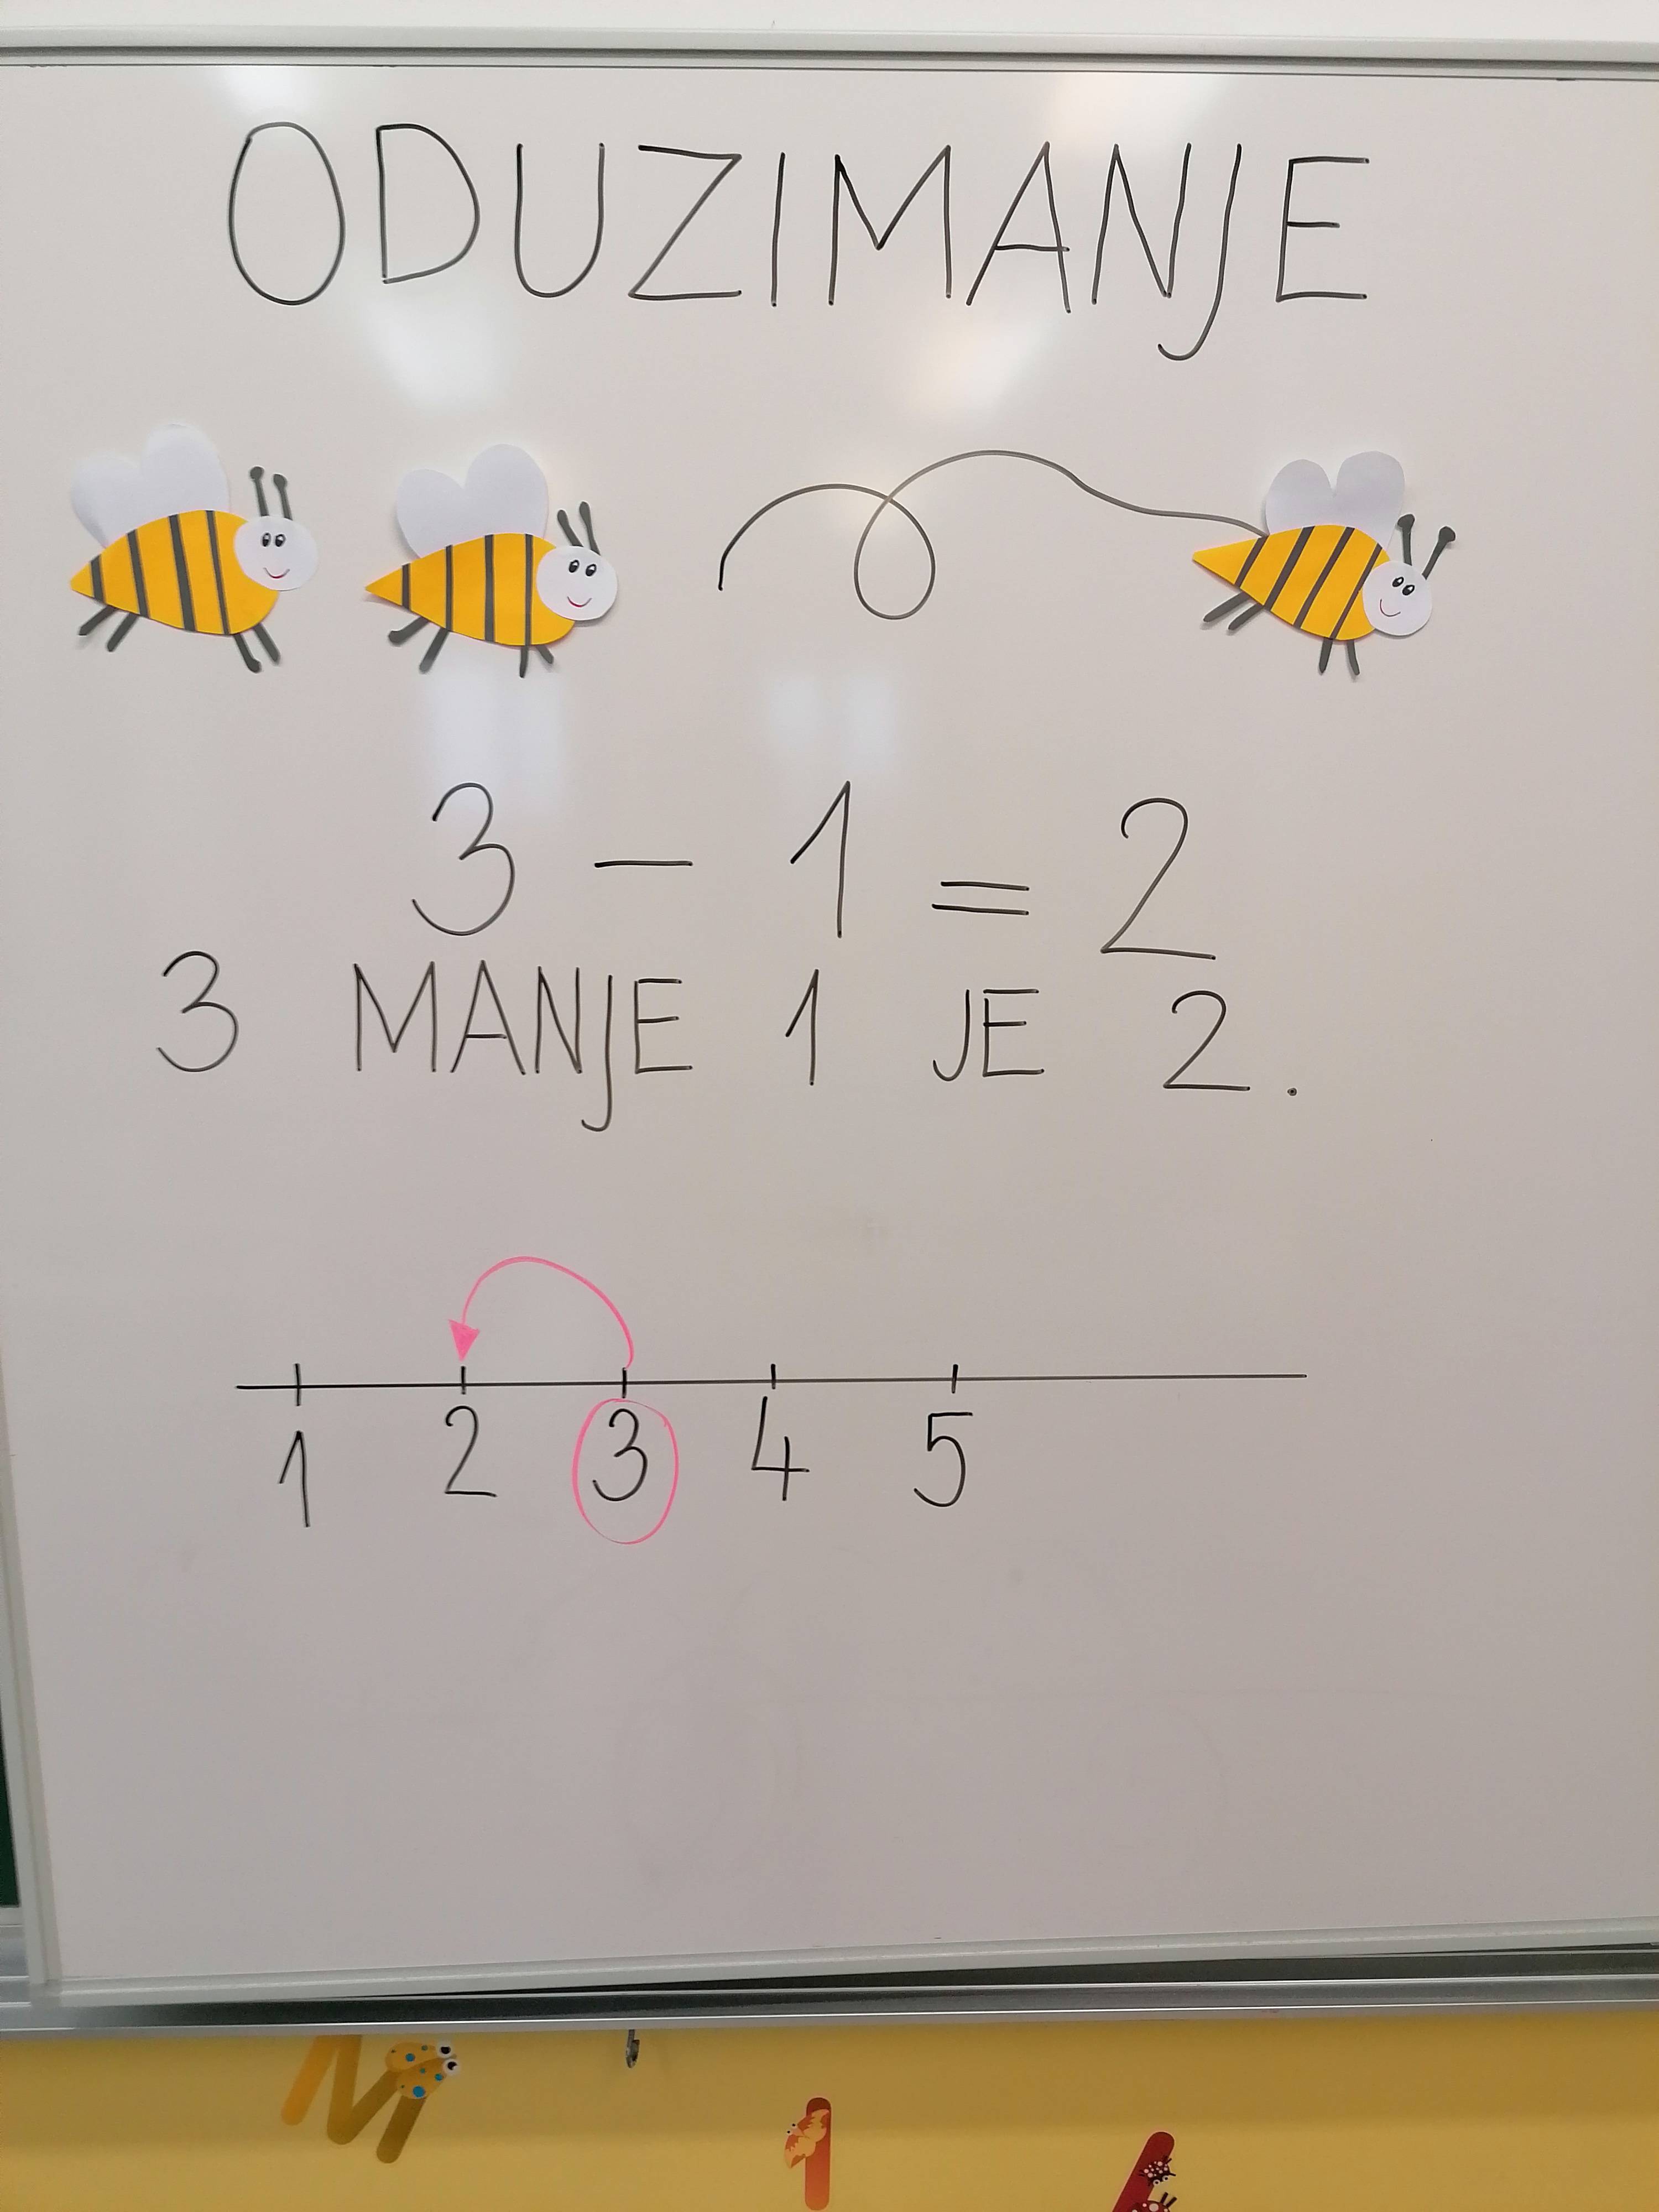 ODUZIMANJE
3 – 1 = 2
3 MANJE 1 JE 2.
1 2 3 4 5
M
1